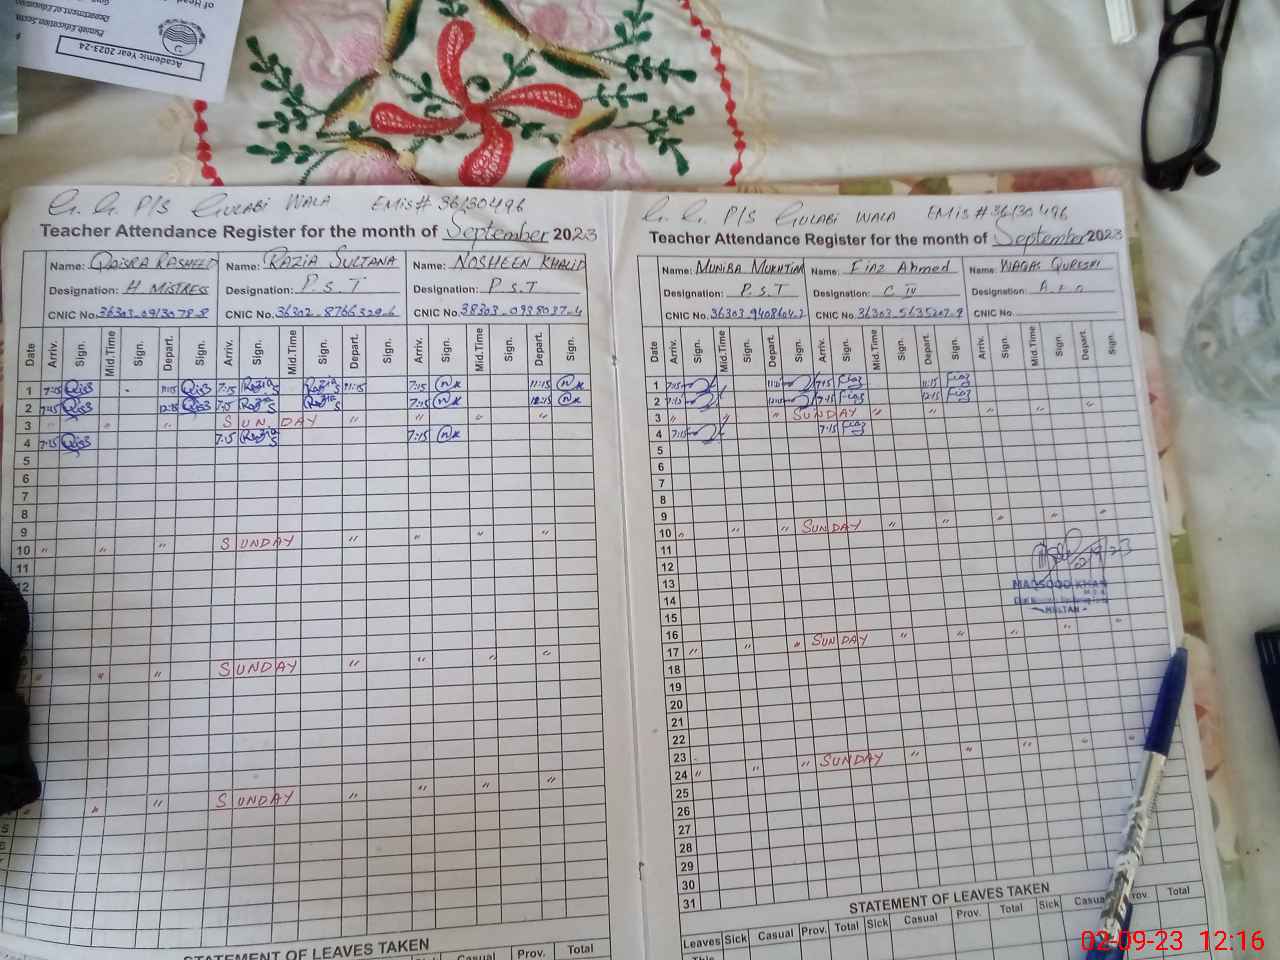 of Head
Department of Education
Punjab Education Sector
Academic Year 2023-24
G. G. P/S GULABI WALA EMIS# 36130496
Teacher Attendance Register for the month of September 2023
Name: QAISRA RASHEED Name: RAZIA SULTANA Name: NOSHEEN KHALID
Designation: H MISTRESS Designation: P.S.T Designation: P.S.T
CNIC No. CNIC No. CNIC No.
Date Arriv. Sign. Mid.Time Sign. Depart. Sign. Arriv. Sign. Mid.Time Sign. Depart. Sign. Arriv. Sign. Mid.Time Sign. Depart. Sign.
1 7:45 11:15 7:15 Razia Razia 11:15 7:15 11:15
2 7:45 12:15 7:15 Razia Razia 7:15 12:15
3 " " " SUNDAY " " " "
4 7:15 7:15 Razia 7:15
5
6
7
8
9
10 " " " SUNDAY " " " "
11
12
" " " SUNDAY " " " "
" " SUNDAY " " " "
STATEMENT OF LEAVES TAKEN
Sick Casual Prov. Total
G. G. P/S GULABI WALA EMIS #36130496
Teacher Attendance Register for the month of September 2023
Name: MUNIBA MUKHTIAR Name: Fiaz Ahmed Name: WAQAS QURESHI
Designation: P.S.T Designation: C IV Designation:
CNIC No. CNIC No. CNIC No.
Date Arriv. Sign. Mid.Time Sign. Depart. Sign. Arriv. Sign. Mid.Time Sign. Depart. Sign. Arriv. Sign. Mid.Time Sign. Depart. Sign.
1 7:15 11:15 7:15 Fiaz 11:15 Fiaz
2 7:15 12:15 7:15 Fiaz 12:15 Fiaz
3 " " " SUNDAY " " " " "
4 7:15 7:15 Fiaz
5
6
7
8
9
10 " " " SUNDAY " " " " "
11
12
13
14
15
16
17 " " " SUNDAY " " " " "
18
19
20
21
22
23
24 " " " SUNDAY " " " " "
25
26
27
28
29
30
31
2/9/23
MAQSOOD KHAN
MULTAN
STATEMENT OF LEAVES TAKEN
Leaves Sick Casual Prov. Total Sick Casual Prov. Total Sick Casual Prov. Total
This
02-09-23 12:16